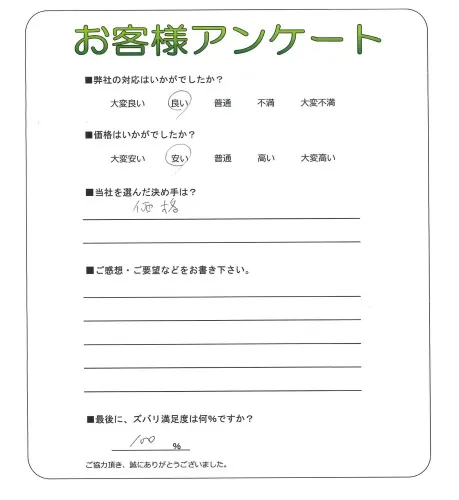 お客様アンケート
■弊社の対応はいかがでしたか？
大変良い 良い 普通 不満 大変不満
■価格はいかがでしたか？
大変安い 安い 普通 高い 大変高い
■当社を選んだ決め手は？
価格
■ご感想・ご要望などをお書き下さい。
■最後に、ズバリ満足度は何%ですか？
100 %
ご協力頂き、誠にありがとうございました。